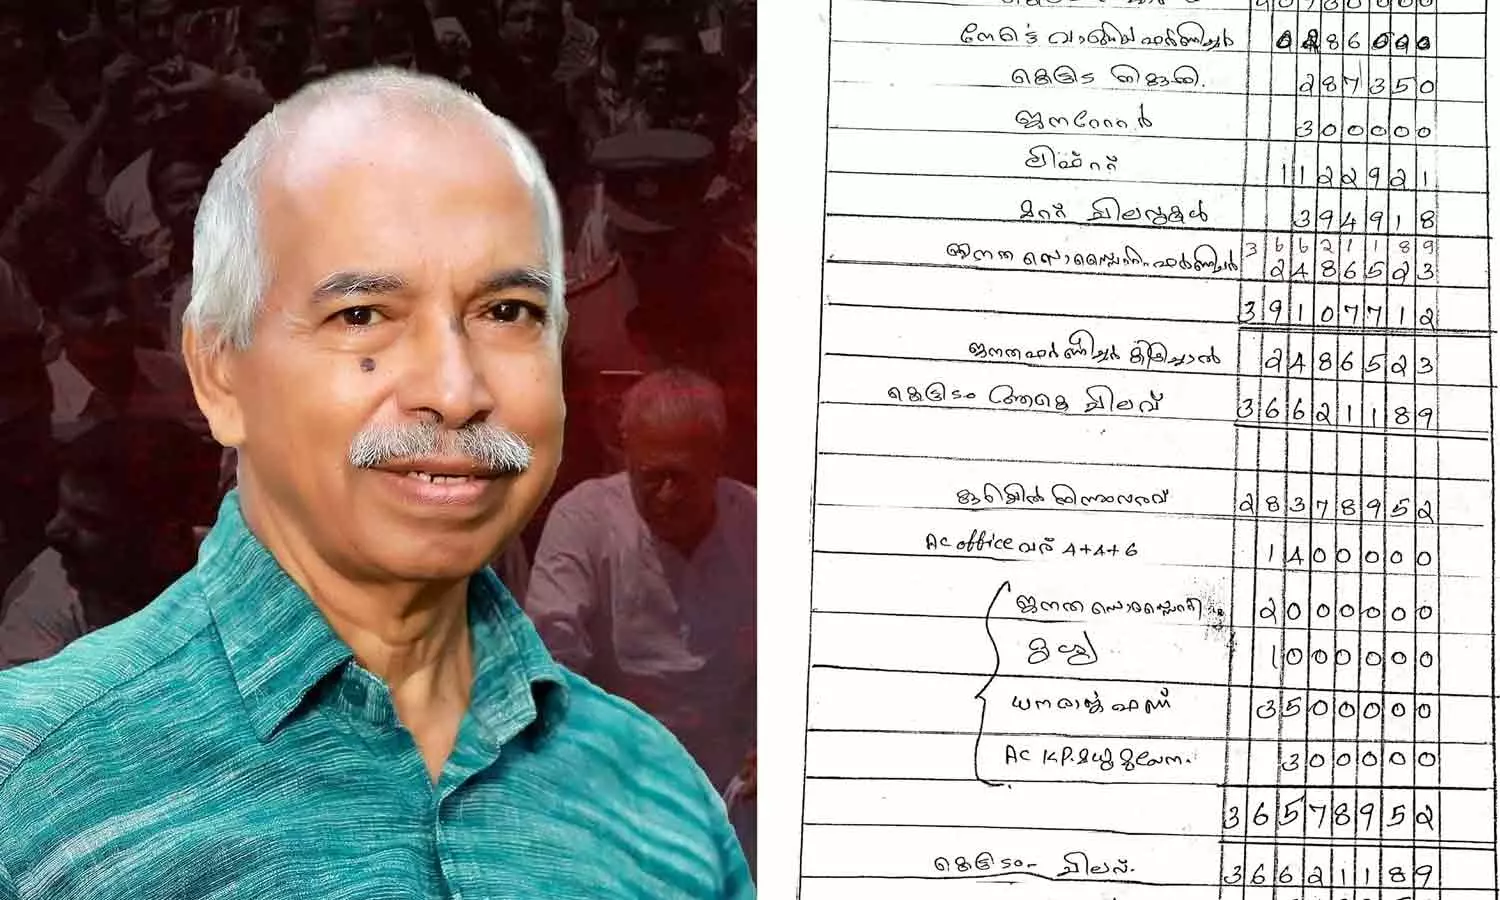 നോട്ടെ വാങ്ങിയ ഫർണ്ണിച്ചർ 0286000
287350
ജനറേറ്റർ 300000
ലിഫ്റ്റ് 1122921
മററ് ചിലവുകൾ 394918
36621189
ജനത സൊസൈറ്റി ഫർണ്ണിച്ചർ 2486523
39107712
ജനത ഫർണ്ണിച്ചർ കിഴിച്ചാൽ 2486523
കെട്ടിടം ആകെ ചിലവ് 36621189
28378952
Ac office വഴി A+A+G 1400000
ജനത സൊസൈറ്റി 2000000
1000000
ധനരാജ് ഫണ്ട് 3500000
Ac K.P. മധു മുഖേന. 300000
36578952
കെട്ടിടം - ചിലവ്. 36621189